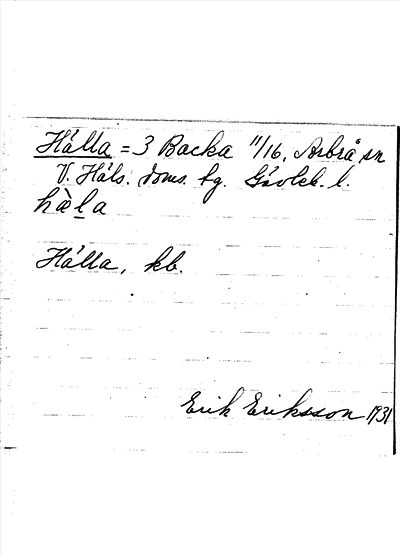 Hälla = 3 Backa 11/16, Arbrå sn
V. Häls. doms. tg. Gävleb. l.
hàl̲a
Hälla, kb.
Erik Eriksson 1931